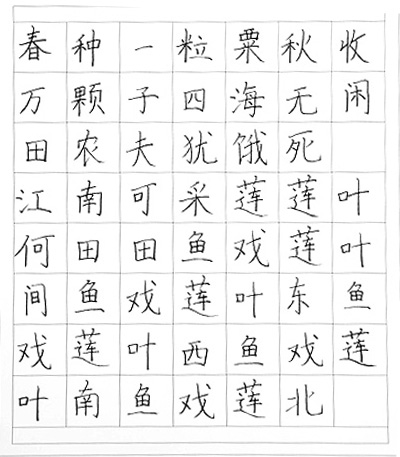 春种一粒粟秋收
万颗子四海无闲
田农夫犹饿死
江南可采莲莲叶
何田田鱼戏莲叶
间鱼戏莲叶东鱼
戏莲叶西鱼戏莲
叶南鱼戏莲北